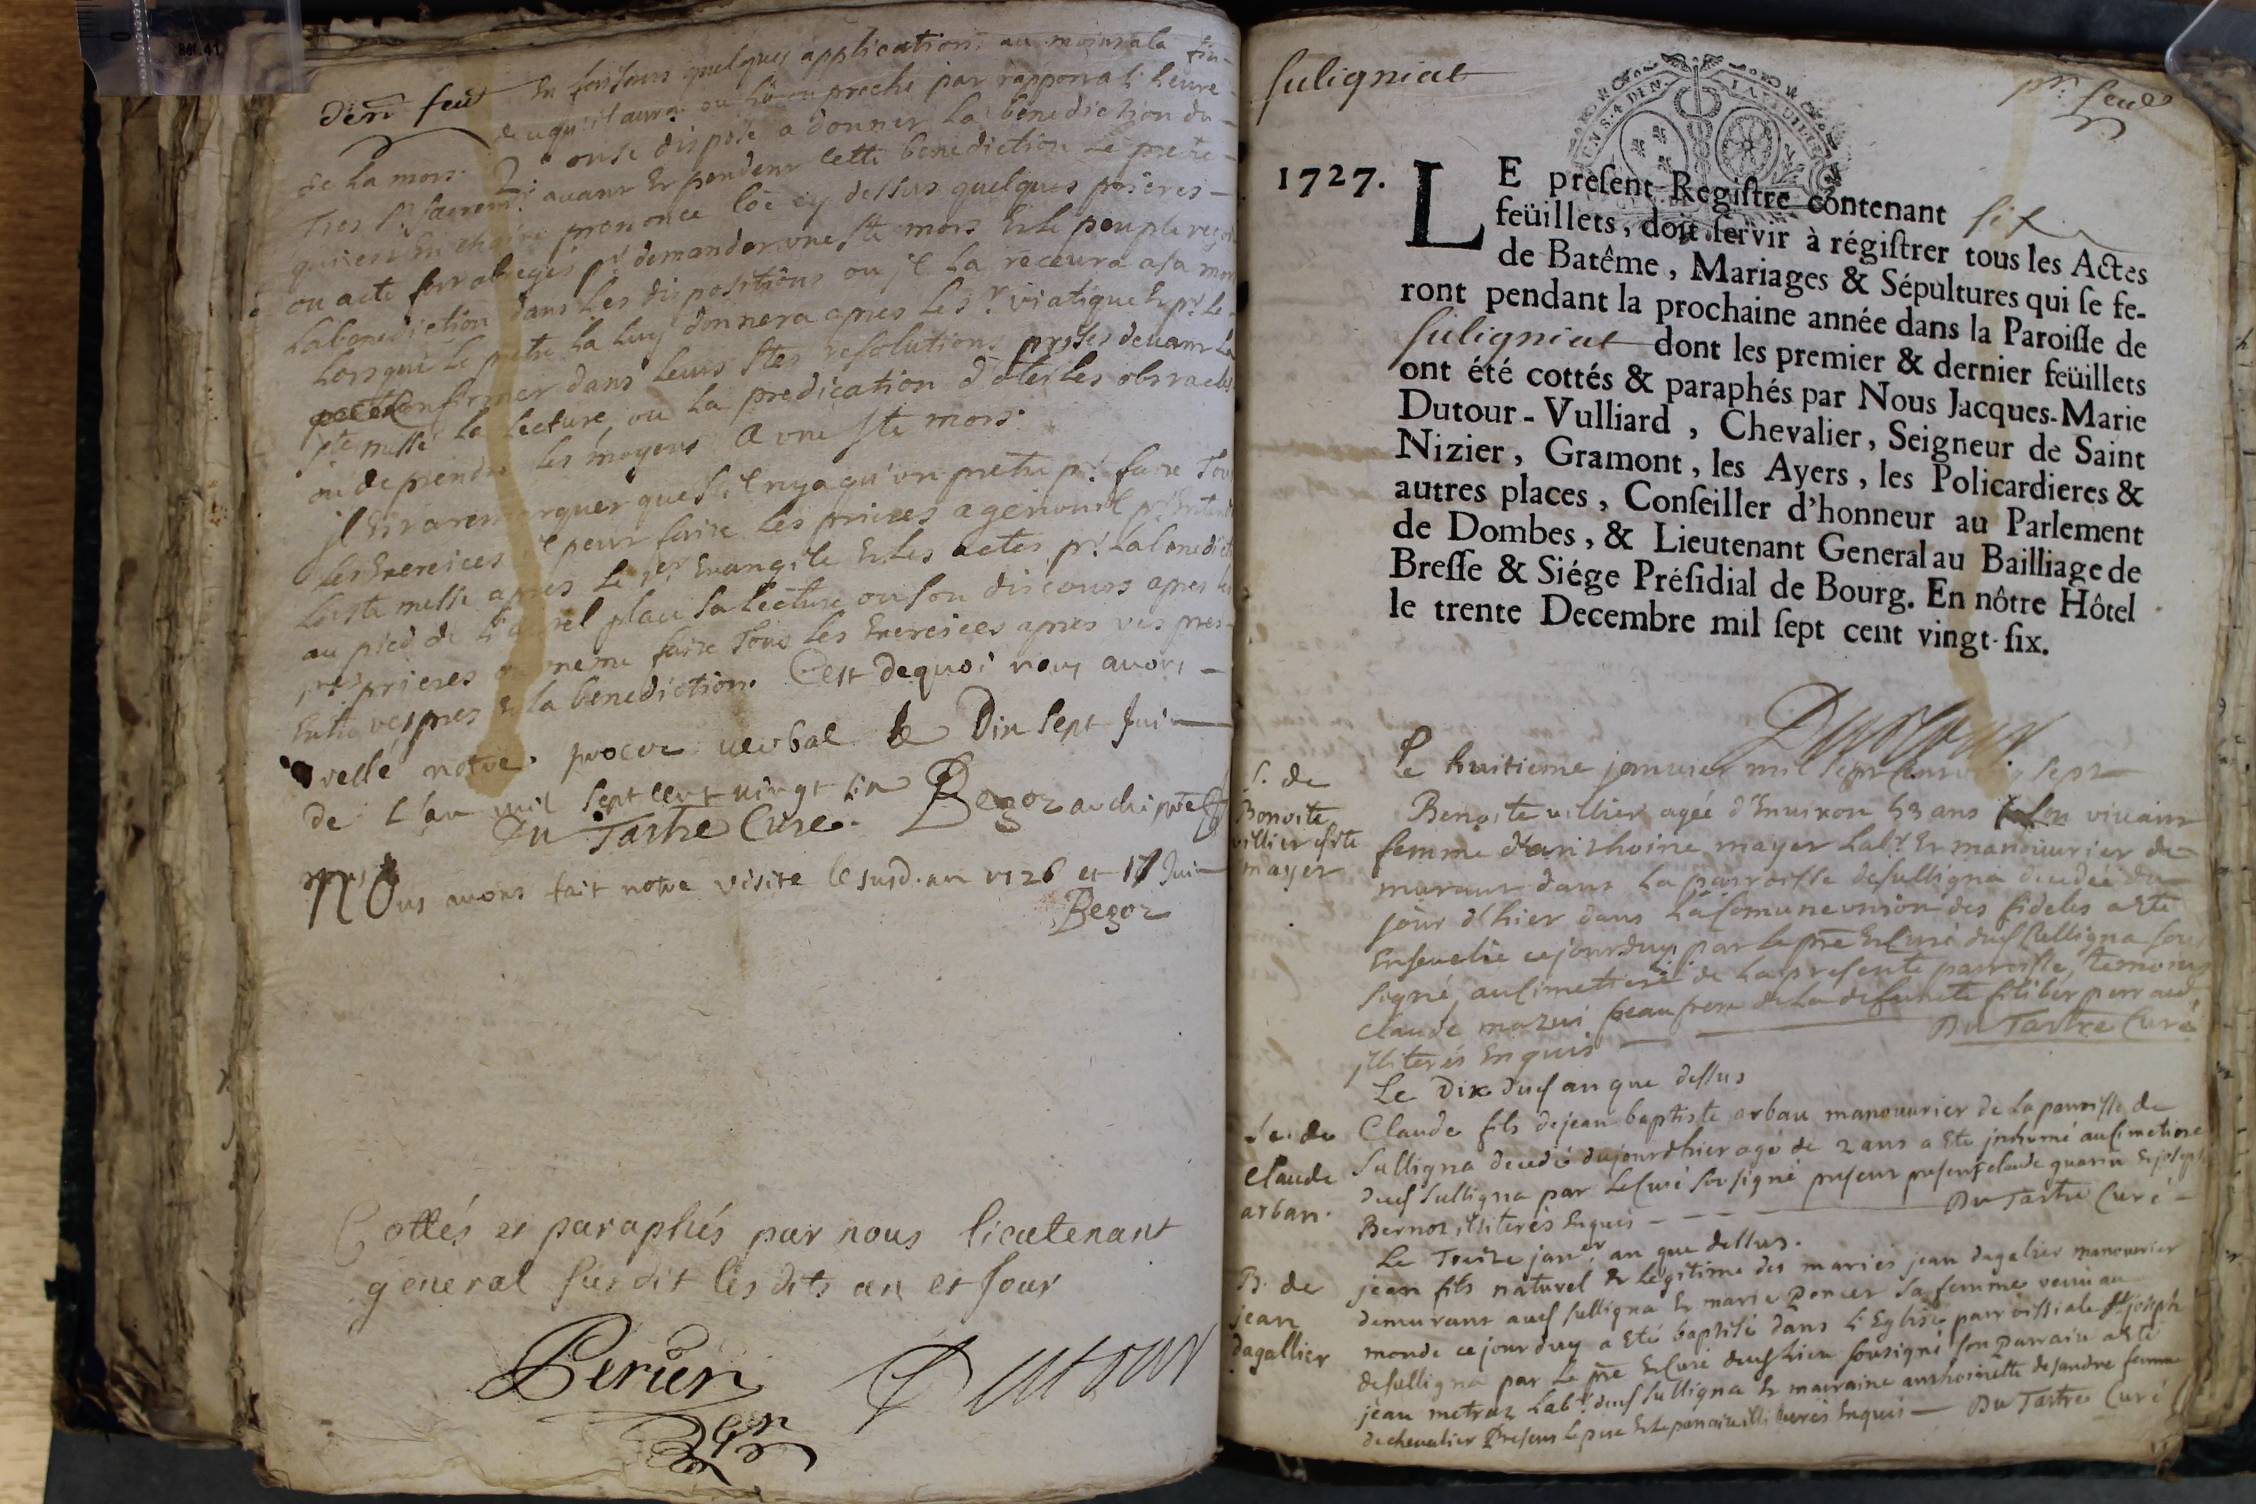 dern feut
En faisans quelques applications au moins a la fin
de ce qu'il aura ou lû ou preché par rapport a l'heure
de la mort. 2° on se dispose a donner la benediction du
Tres St sacrem.t avant Et pendent cette benediction Le pretre
qui est En chaire prononce loe cy dessus quelques prieres
ou acte fort abregés pr demander une ste mort Et le peuple reçoit
La benediction dans les dispositions ou jl La recevra a sa mort
Lorsque Le pretre La luy donnera apres le s.r viatique Et pr le
confirmer dans leurs stes resolutions prises devant La
ste messe La lecture, ou La predication d'oter les obstacles
ou de prendre les moyens a une ste mort.
jl Est a remarquer que s'il n'y a qu'un pretre pr faire Tous
les Exercices il peut faire les prieres a genouil
La ste messe apres le 1er Evangile Et les actes pr La benedict
au pied de l'autel place sa lecture ou son discours apres les
prieres ou meme faire Tous les Exercices apres vespres
Entre vespres Et la benediction. C'est dequoi nous avons
notre proces verbal le Dix sept Juin
de L'an mil sept cent vingt six Begoz archiprêt
Du Tartre Curé.
Nous avons fait notre visite le susd. an 1726 et 17 Juin
Begoz
Cottés et paraphés par nous lieutenant
general susdit les dits an et jour
Perier Dutour
suligniat
pr. feue
1727.
LE present Registre contenant six
feüillets, doit servir à régistrer tous les Actes
de Batême, Mariages & Sépultures qui se fe-
ront pendant la prochaine année dans la Paroisse de
suligniat dont les premier & dernier feüillets
ont été cottés & paraphés par Nous Jacques-Marie
Dutour-Vulliard, Chevalier, Seigneur de Saint
Nizier, Gramont, les Ayers, les Policardieres &
autres places, Conseiller d'honneur au Parlement
de Dombes, & Lieutenant General au Bailliage de
Bresse & Siége Présidial de Bourg. En nôtre Hôtel
le trente Decembre mil sept cent vingt-six.
Dutour
S. de
Bonoite
villier fste
mayer
Le huitieme janvier mil sept cent sept
Benoite villier agée d'Environ 53 ans vivant
femme d'anthoine mayer Labr Et manouvrier de
murant dans La parroisse de sulligna decedée du
jour d'hier dans La Comune union des fideles a Eté
Ensevelie cejourduy par le pre Et Curé dud sulligna sous
signé, au Cimetiere de La presente parroisse, temoins
Claude mazui beaufrere de La defuncte filiber perraud,
jlliterés Enquis Du Tartre Curé
Le Dix dud an que dessus
Se. de
Claude
arban.
Claude fils de jean baptiste arban manouvrier de La parroisse de
Sulligna decedé du jourd'hier agé de 2 ans a Eté jnhumé au Cimetiere
dud sulligna par Le Curé sousigné presens Claude guarin Et joseph
Bernoz jlliterés Enquis Du Tartre Curé
Le Treize janer an que dessus.
B. de
jean
dagallier
jean fils naturel Et Legitime des mariés jean dagalier manouvrier
demurant aud sulligna Et marie Poncet Sa femme venu au
monde cejourduy a Eté baptisé dans L'Eglise parroissiale St joseph
de sulligna par Le pre Et Curé dud Lieu sousigné son parrain a Eté
jean metraz Labr dud sulligna Et marraine anthoinette desandre femme
de chevalier Presens Le pere Et Le parrain jlliterés Enquis Du Tartre Curé